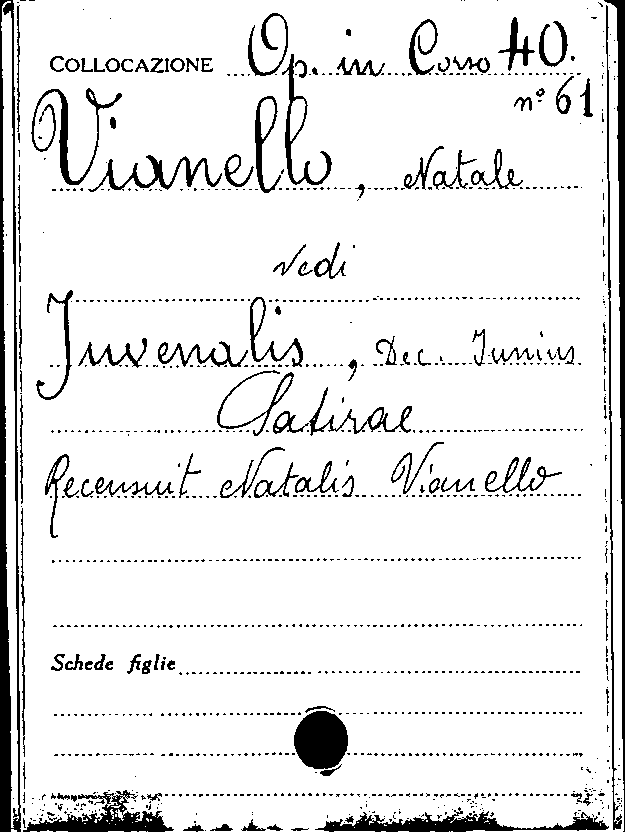 COLLOCAZIONE Op. in Corso 40.
n° 61
Vianello, Natale
vedi
Juvenalis, Dec. Junius
Satirae
Recensuit Natalis Vianello
Schede figlie